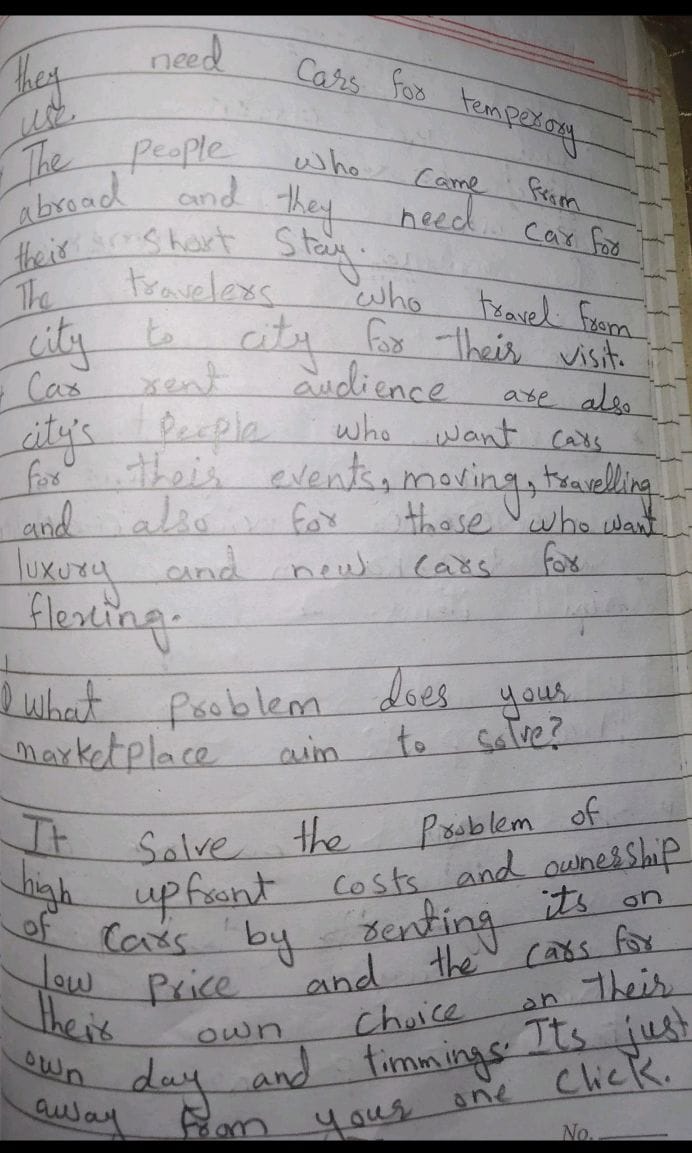 they need Cars for temperory
use.
The people who came from
abroad and they need car for
their short stay.
The travelers who travel from
city to city for their visit.
Car rent audience are also
city's people who want cars
for their events, moving, travelling
and also for those who want
luxury and new cars for
flexing.
what problem does your
marketplace aim to solve?
It Solve the Problem of
high upfront costs and ownership
of Cars by renting its on
low price and the cars for
their own choice on their
own day and timmings. Its just
away from your one click.
No.